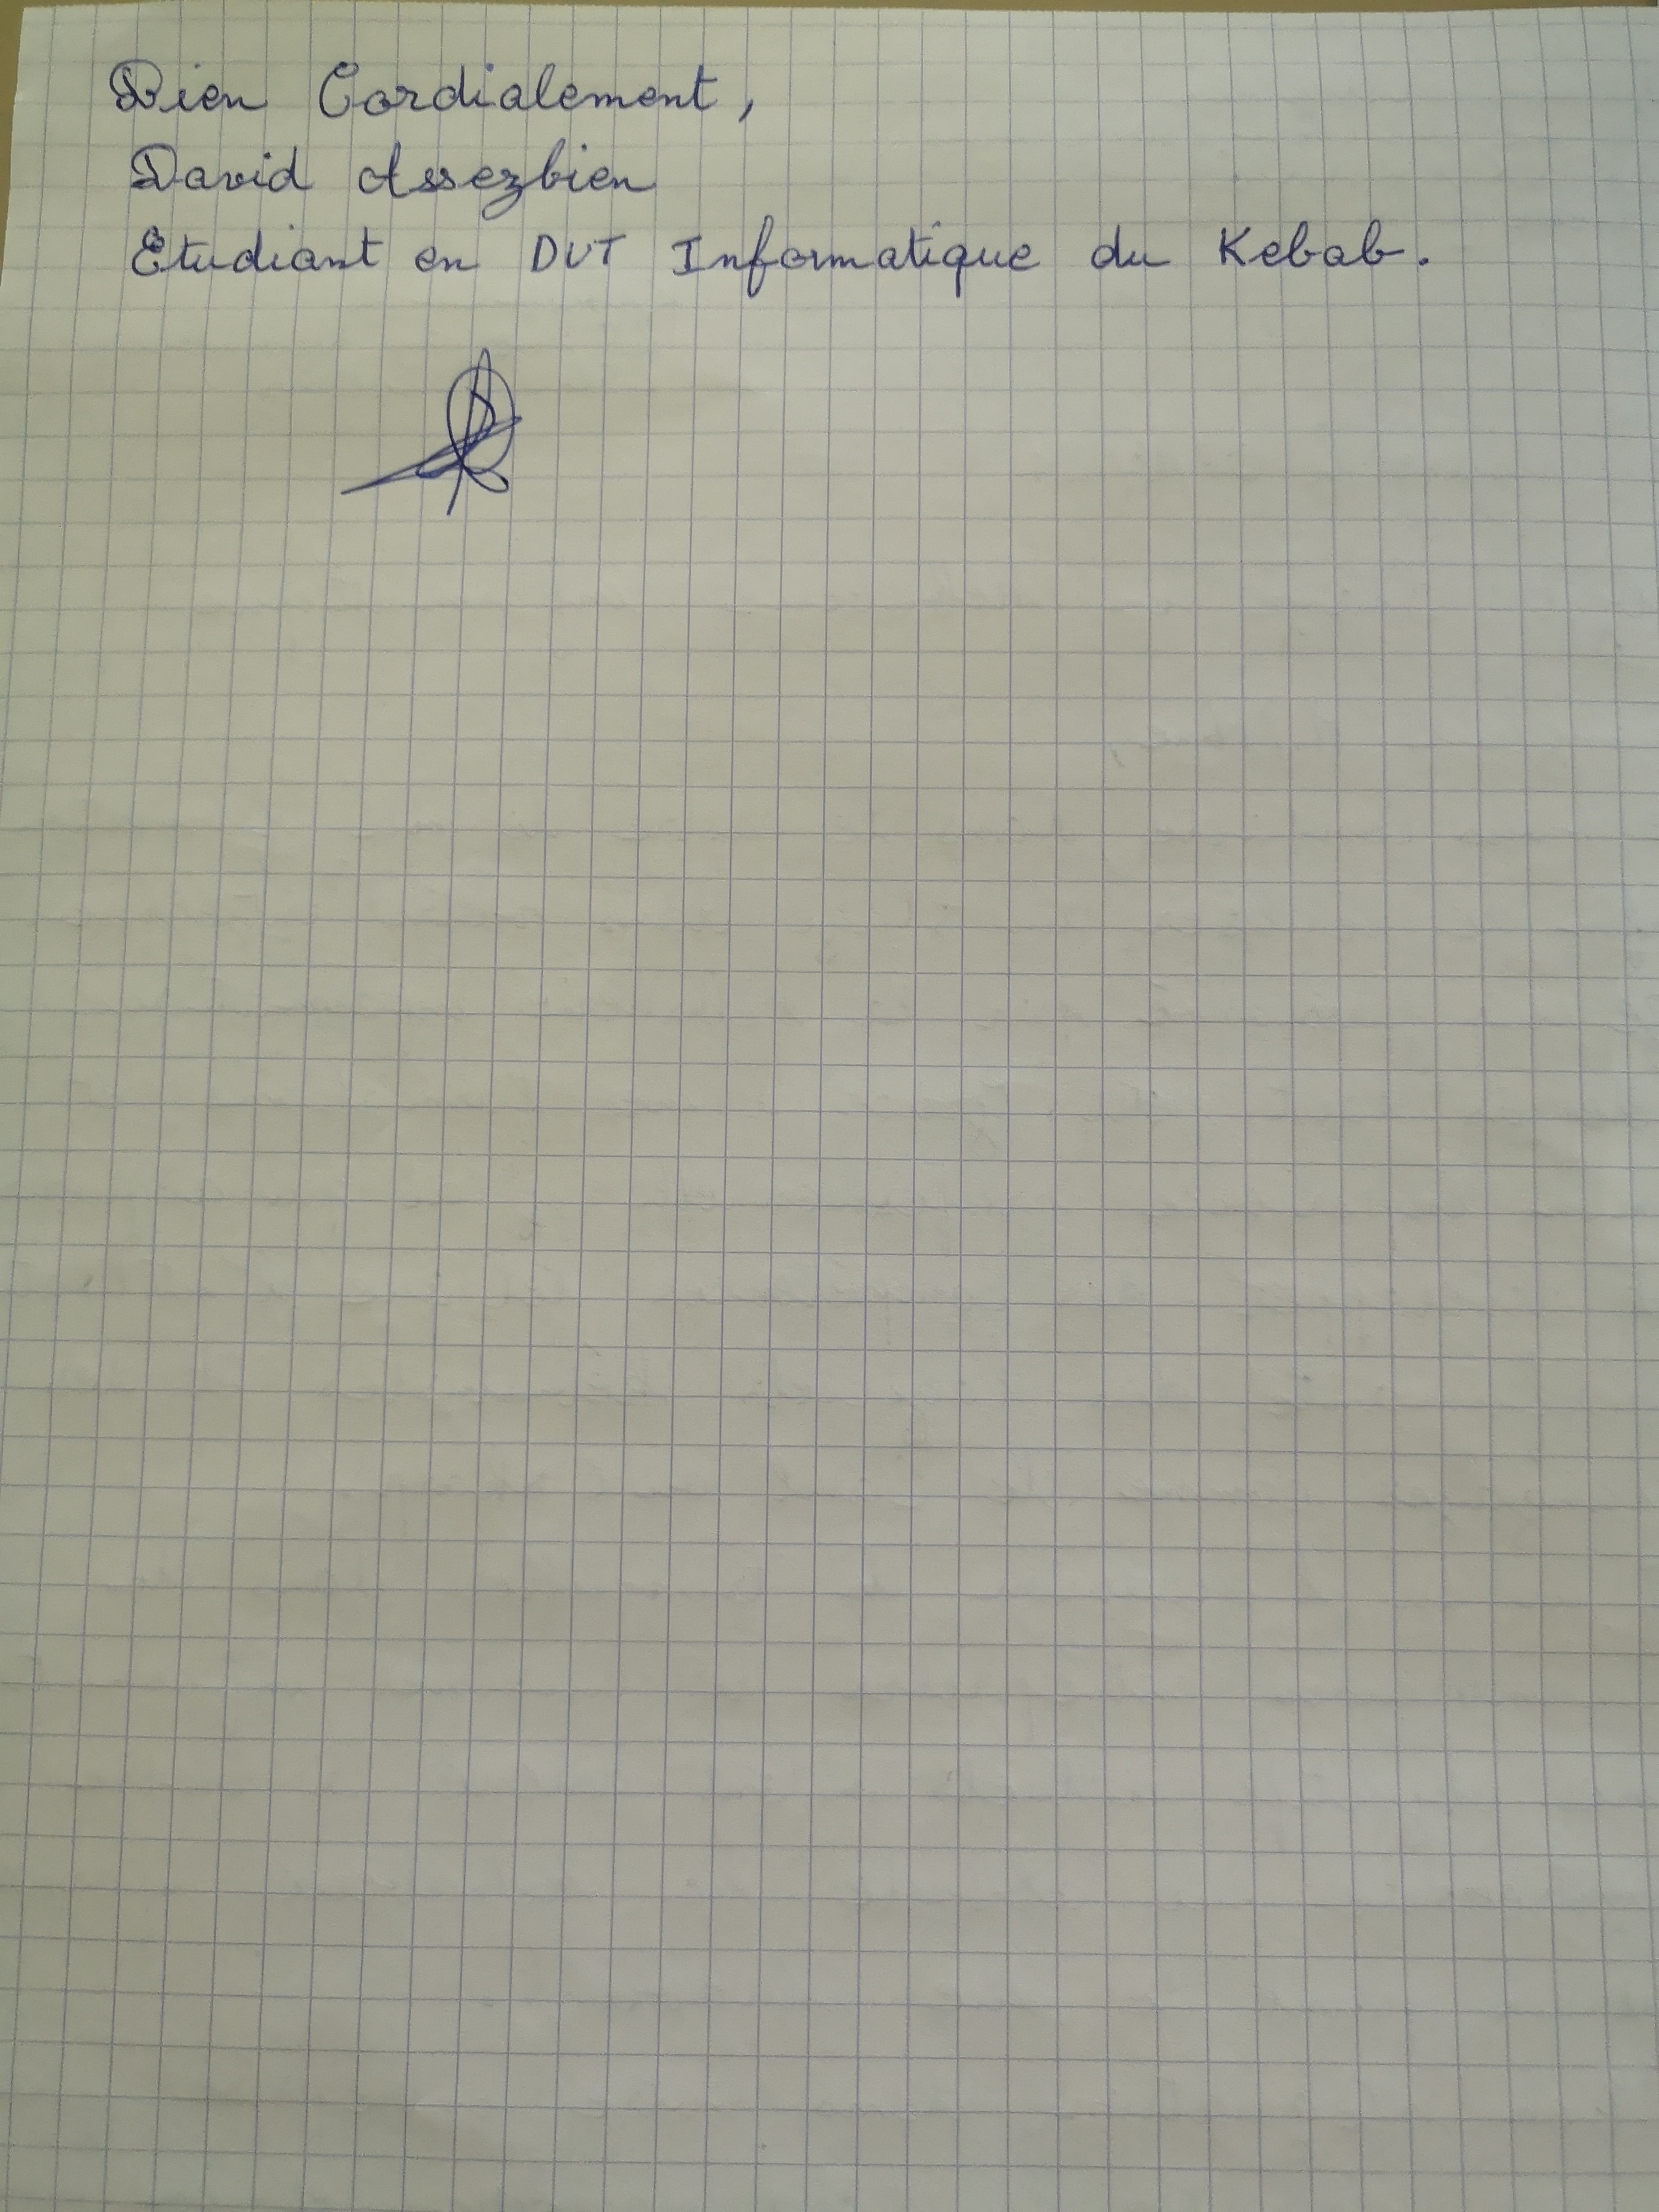 Bien Cordialement,
David Assezbien
Etudiant en DUT Informatique du Kebab.